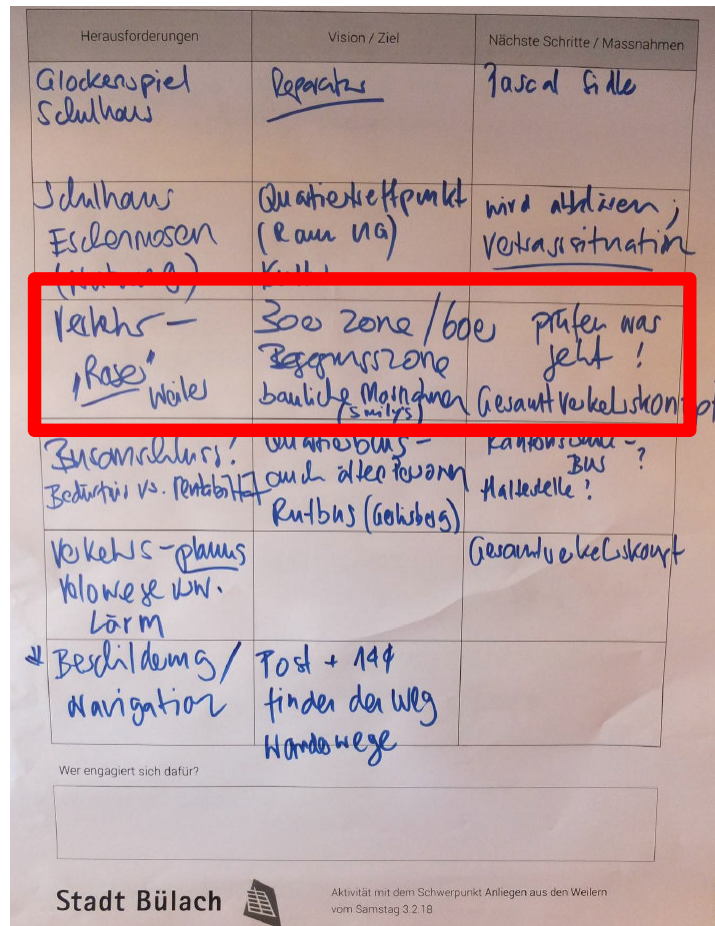 Herausforderungen
Vision / Ziel
Nächste Schritte / Massnahmen
Glockenspiel
Schulhaus
Reparatur
Pascal
Schulhaus
Eschenmosen
(Nutzung)
Quartiertreffpunkt
(Raum UG)
wird abklären;
Vertragssituation
Verkehr -
"Raser"
Weiler
30er Zone / 60er
Begegnungszone
bauliche Massnahmen
(Smilys)
prüfen was
geht!
Gesamtverkehrskonzept
Busanschluss!
Bedürfnis vs. Rentabilität
Quartierbus -
auch ältere Personen
Rufbus
Kantonsschule -
Bus ?
Haltestelle?
Verkehrs-planung
Velowege usw.
Lärm
Gesamtverkehrskonzept
* Beschilderung /
Navigation
Post + 144
finden den Weg
Wanderwege
Wer engagiert sich dafür?
Stadt Bülach
Aktivität mit dem Schwerpunkt Anliegen aus den Weilern
vom Samstag 3.2.18